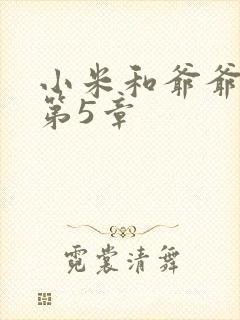 小米和爷爷
第5章
霓裳清舞